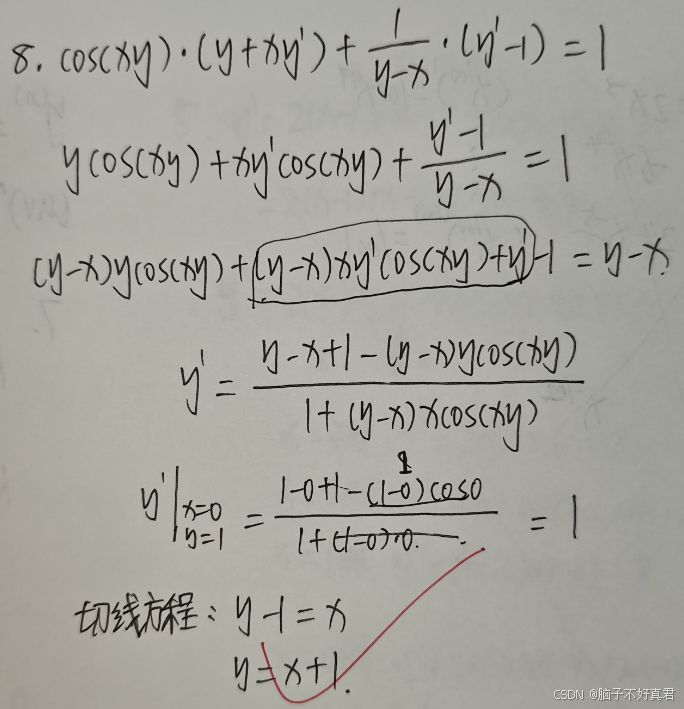 8. cos(xy)·(y+xy′)+1/(y-x)·(y′-1)=1
ycos(xy)+xy′cos(xy)+(y′-1)/(y-x)=1
(y-x)ycos(xy)+(y-x)xy′cos(xy)+y′-1=y-x
y′=(y-x+1-(y-x)ycos(xy))/(1+(y-x)xcos(xy))
y′|x=0 y=1 =(1-0+1-(1-0)cos0)/(1+(1-0)·0.)=1
1
切线方程：y-1=x
y=x+1.
CSDN @脑子不好真君